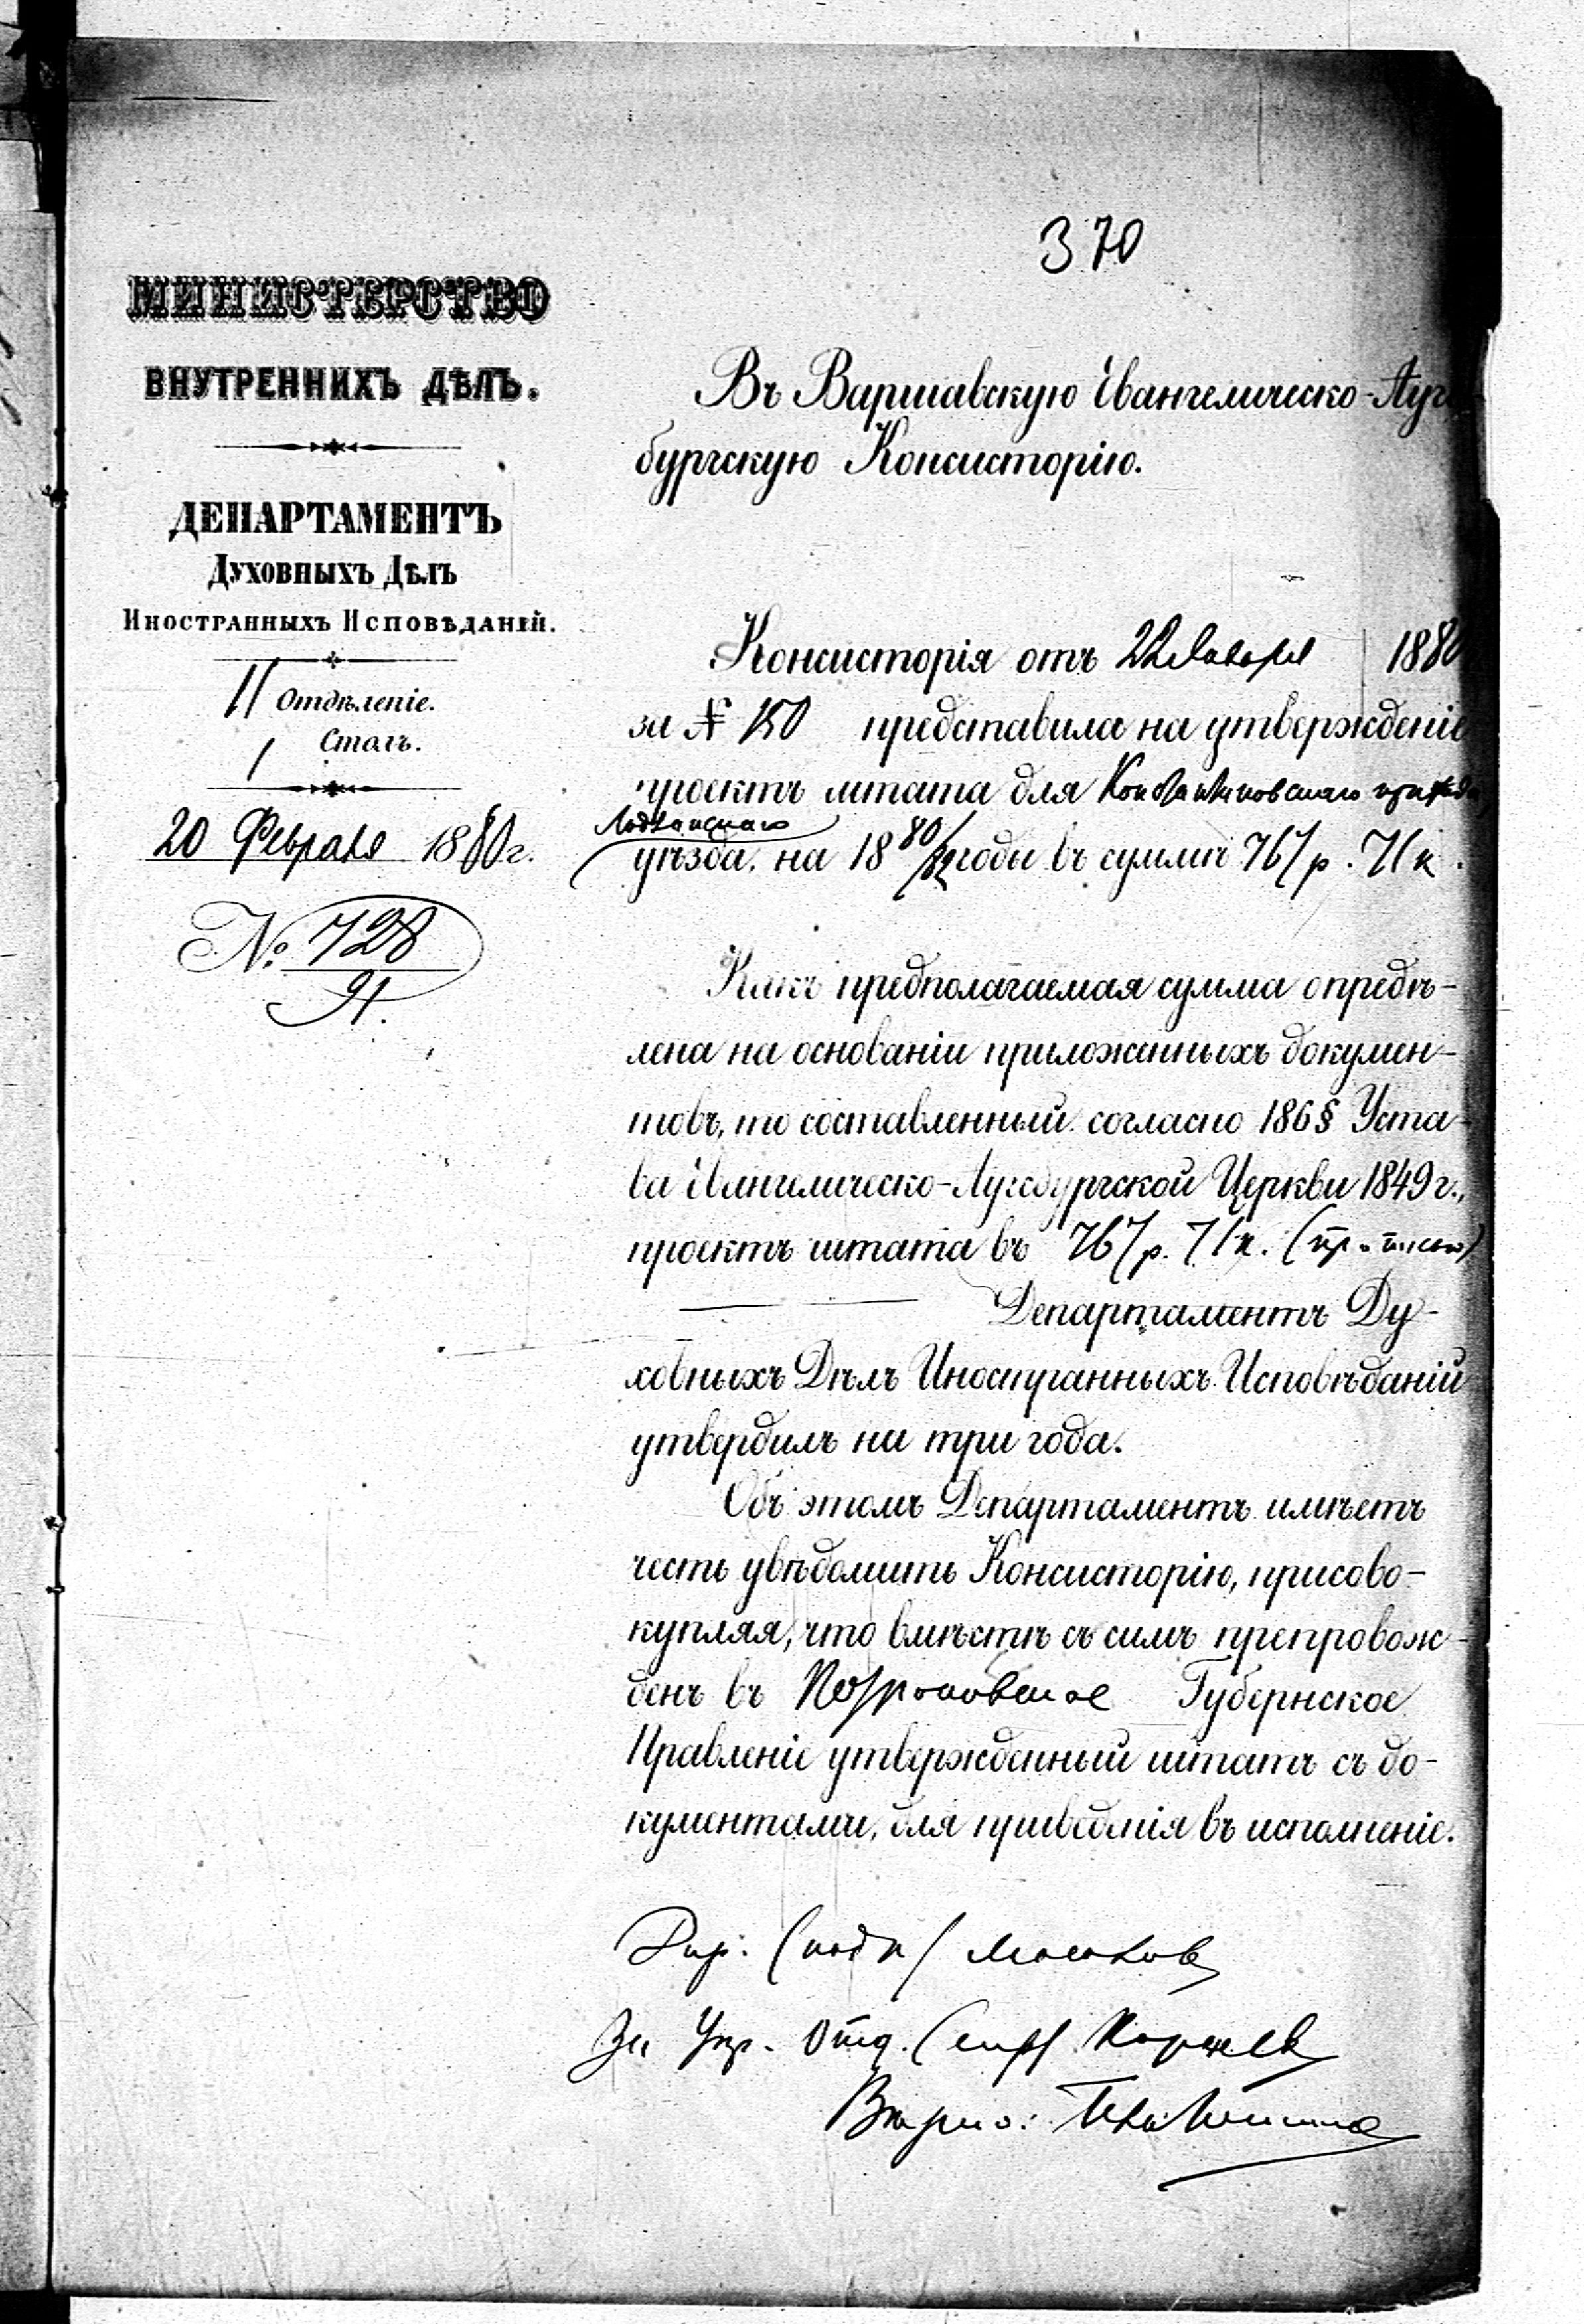 370
МИНИСТЕРСТВО
ВНУТРЕННИХЪ ДѢЛЪ.
ДЕПАРТАМЕНТЪ
ДУХОВНЫХЪ ДѢЛЪ
ИНОСТРАННЫХЪ ИСПОВѢДАНІЙ.
II Отдѣленіе.
1 Столъ.
20 Февраля 1880 г.
№ 728
91.
Въ Варшавскую Евангелическо-Ауг
бургскую Консисторію.
Консисторія отъ 22 Января 1880
за № 150 представила на утвержденіе
проектъ штата для Константиновскаго прихода
Лодзинскаго
уѣзда, на 1880/82 годы въ суммѣ 767 р. 71 к.
Какъ предполагаемая сумма опредѣ-
лена на основаніи приложенныхъ докумен-
товъ, то составленный согласно 186 § Уста-
ва Евангелическо-Аугсбургской Церкви 1849 г.,
проектъ штата въ 767 р. 71 к. (пр-писью)
Департаментъ Ду-
ховныхъ Дѣлъ Иностранныхъ Исповѣданій
утвердилъ на три года.
Объ этомъ Департаментъ имѣетъ
честь увѣдомить Консисторію, присово-
купляя, что вмѣстѣ съ симъ препровож-
денъ въ Петроковское Губернское
Правленіе утвержденный штатъ съ до-
кументами, для приведенія въ исполненіе.
Дир. (подп) Мосолов
За Упр. Отд.
Вѣрно: